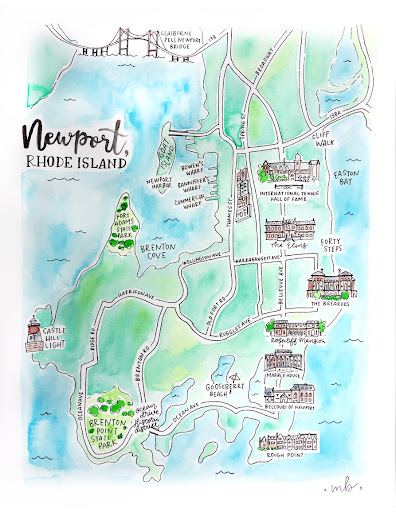 CLAIBORNE
PELL NEWPORT
BRIDGE
138
BROADWAY
Newport,
RHODE ISLAND
GOAT
ISLAND
SPRING ST
138A
CLIFF
WALK
BOWEN'S
WHARF
NEWPORT
HARBOR
BANNISTER'S
WHARF
COMMERCIAL
WHARF
THAMES ST
INTERNATIONAL TENNIS
HALL OF FAME
EASTON
BAY
FORT
ADAMS
STATE
PARK
BRENTON
COVE
The Elms
FORTY
STEPS
WELLINGTON AVE
NARRAGANSETT AVE
BELLEVUE AVE
THE BREAKERS
HARRISON AVE
OLD FORT RD
RUGGLES AVE
Rosecliff Mansion
CASTLE
HILL
LIGHT
RIDGE RD
BRENTON RD
MARBLE HOUSE
GOOSEBERRY
BEACH
BELCOURT OF NEWPORT
OCEAN AVE
BRENTON
POINT
STATE
PARK
ocean
drive
historic
district
OCEAN AVE
ROUGH POINT
mb